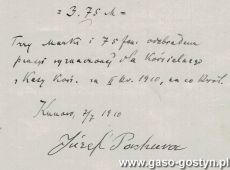 = 3.75 M =
Trzy marki i 75 fen. odebrałem
dla Kościelnego
z Kasy Kość. za II kw. 1910, na co kwit.
Kunowo, 2/7 1910
Józef
www.gaso-gostyn.pl